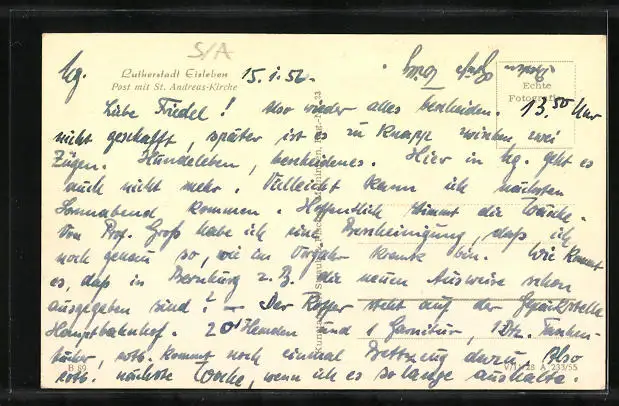 S/A
Lutherstadt Eisleben
Post mit St. Andreas-Kirche
Echte
Fotografie
Hg. 15.1.56.
Liebe Friedel! Also wieder alles bescheiden. 13.50 Uhr
nicht geschafft, später ist es zu knapp zwischen zwei
Zügen. Hundeleben, bescheidenes. Hier in Hg. geht es
auch nicht mehr. Vielleicht kann ich nächsten
Sonnabend kommen. Hoffentlich stimmt die Wäsche.
Von Prof. Groß habe ich eine Bescheinigung, daß ich
noch genau so, wie im Vorjahr krank bin. Wie kommt
es, daß in Bernburg z. B. die neuen Ausweise schon
ausgegeben sind? – Der Koffer steht auf der Gepäckstelle
Hauptbahnhof. 20 Hemden und 1 Garnitur, 1 Dtz. Taschen-
tücher, evtl. kommt noch einmal Bettzeug dazu. Also
evtl. nächste Woche, wenn ich es so lange aushalte.
B 89
V/11/28 A 233/55